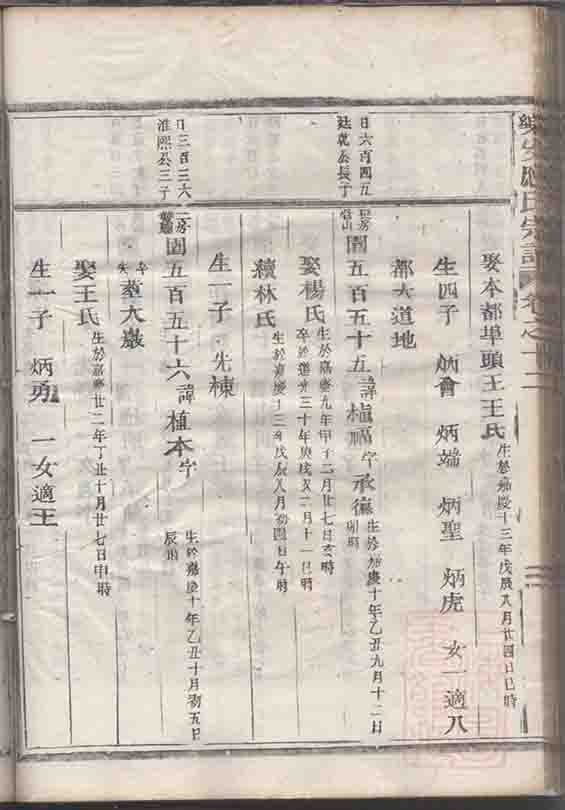 氏宗譜 卷之十二
娶本都埠頭王王氏 生於嘉慶十三年戊辰八月廿四日巳時
生四子 炳會 炳端 炳聖 炳虎 女一適八
都大道地
日六百四五
廷乾公長子
園五百五十五 諱植福 字承德 生於嘉慶十年乙丑九月十二日卯時
娶楊氏 生於嘉慶九年甲子二月廿七日亥時
卒於道光三十年庚戌又二月十一巳時
續林氏 生於嘉慶十三年戊辰八月初四日午時
生一子 光棟
日三百三六
淮熙公三子
二房
園五百五十六 諱植本 字 生於嘉慶十年乙丑十月初五日辰時
卒 失 葬大嚴
娶王氏 生於嘉慶廿二年丁丑十月廿七日申時
生一子 炳勇 一女適王